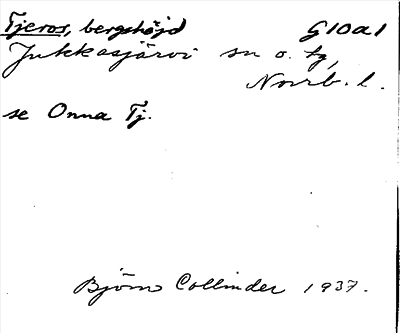 Tjeros, bergshöjd G10a1
Jukkasjärvi sn o. tg,
Norrb. l.
se Onna Tj.
Björn Collinder 1937.